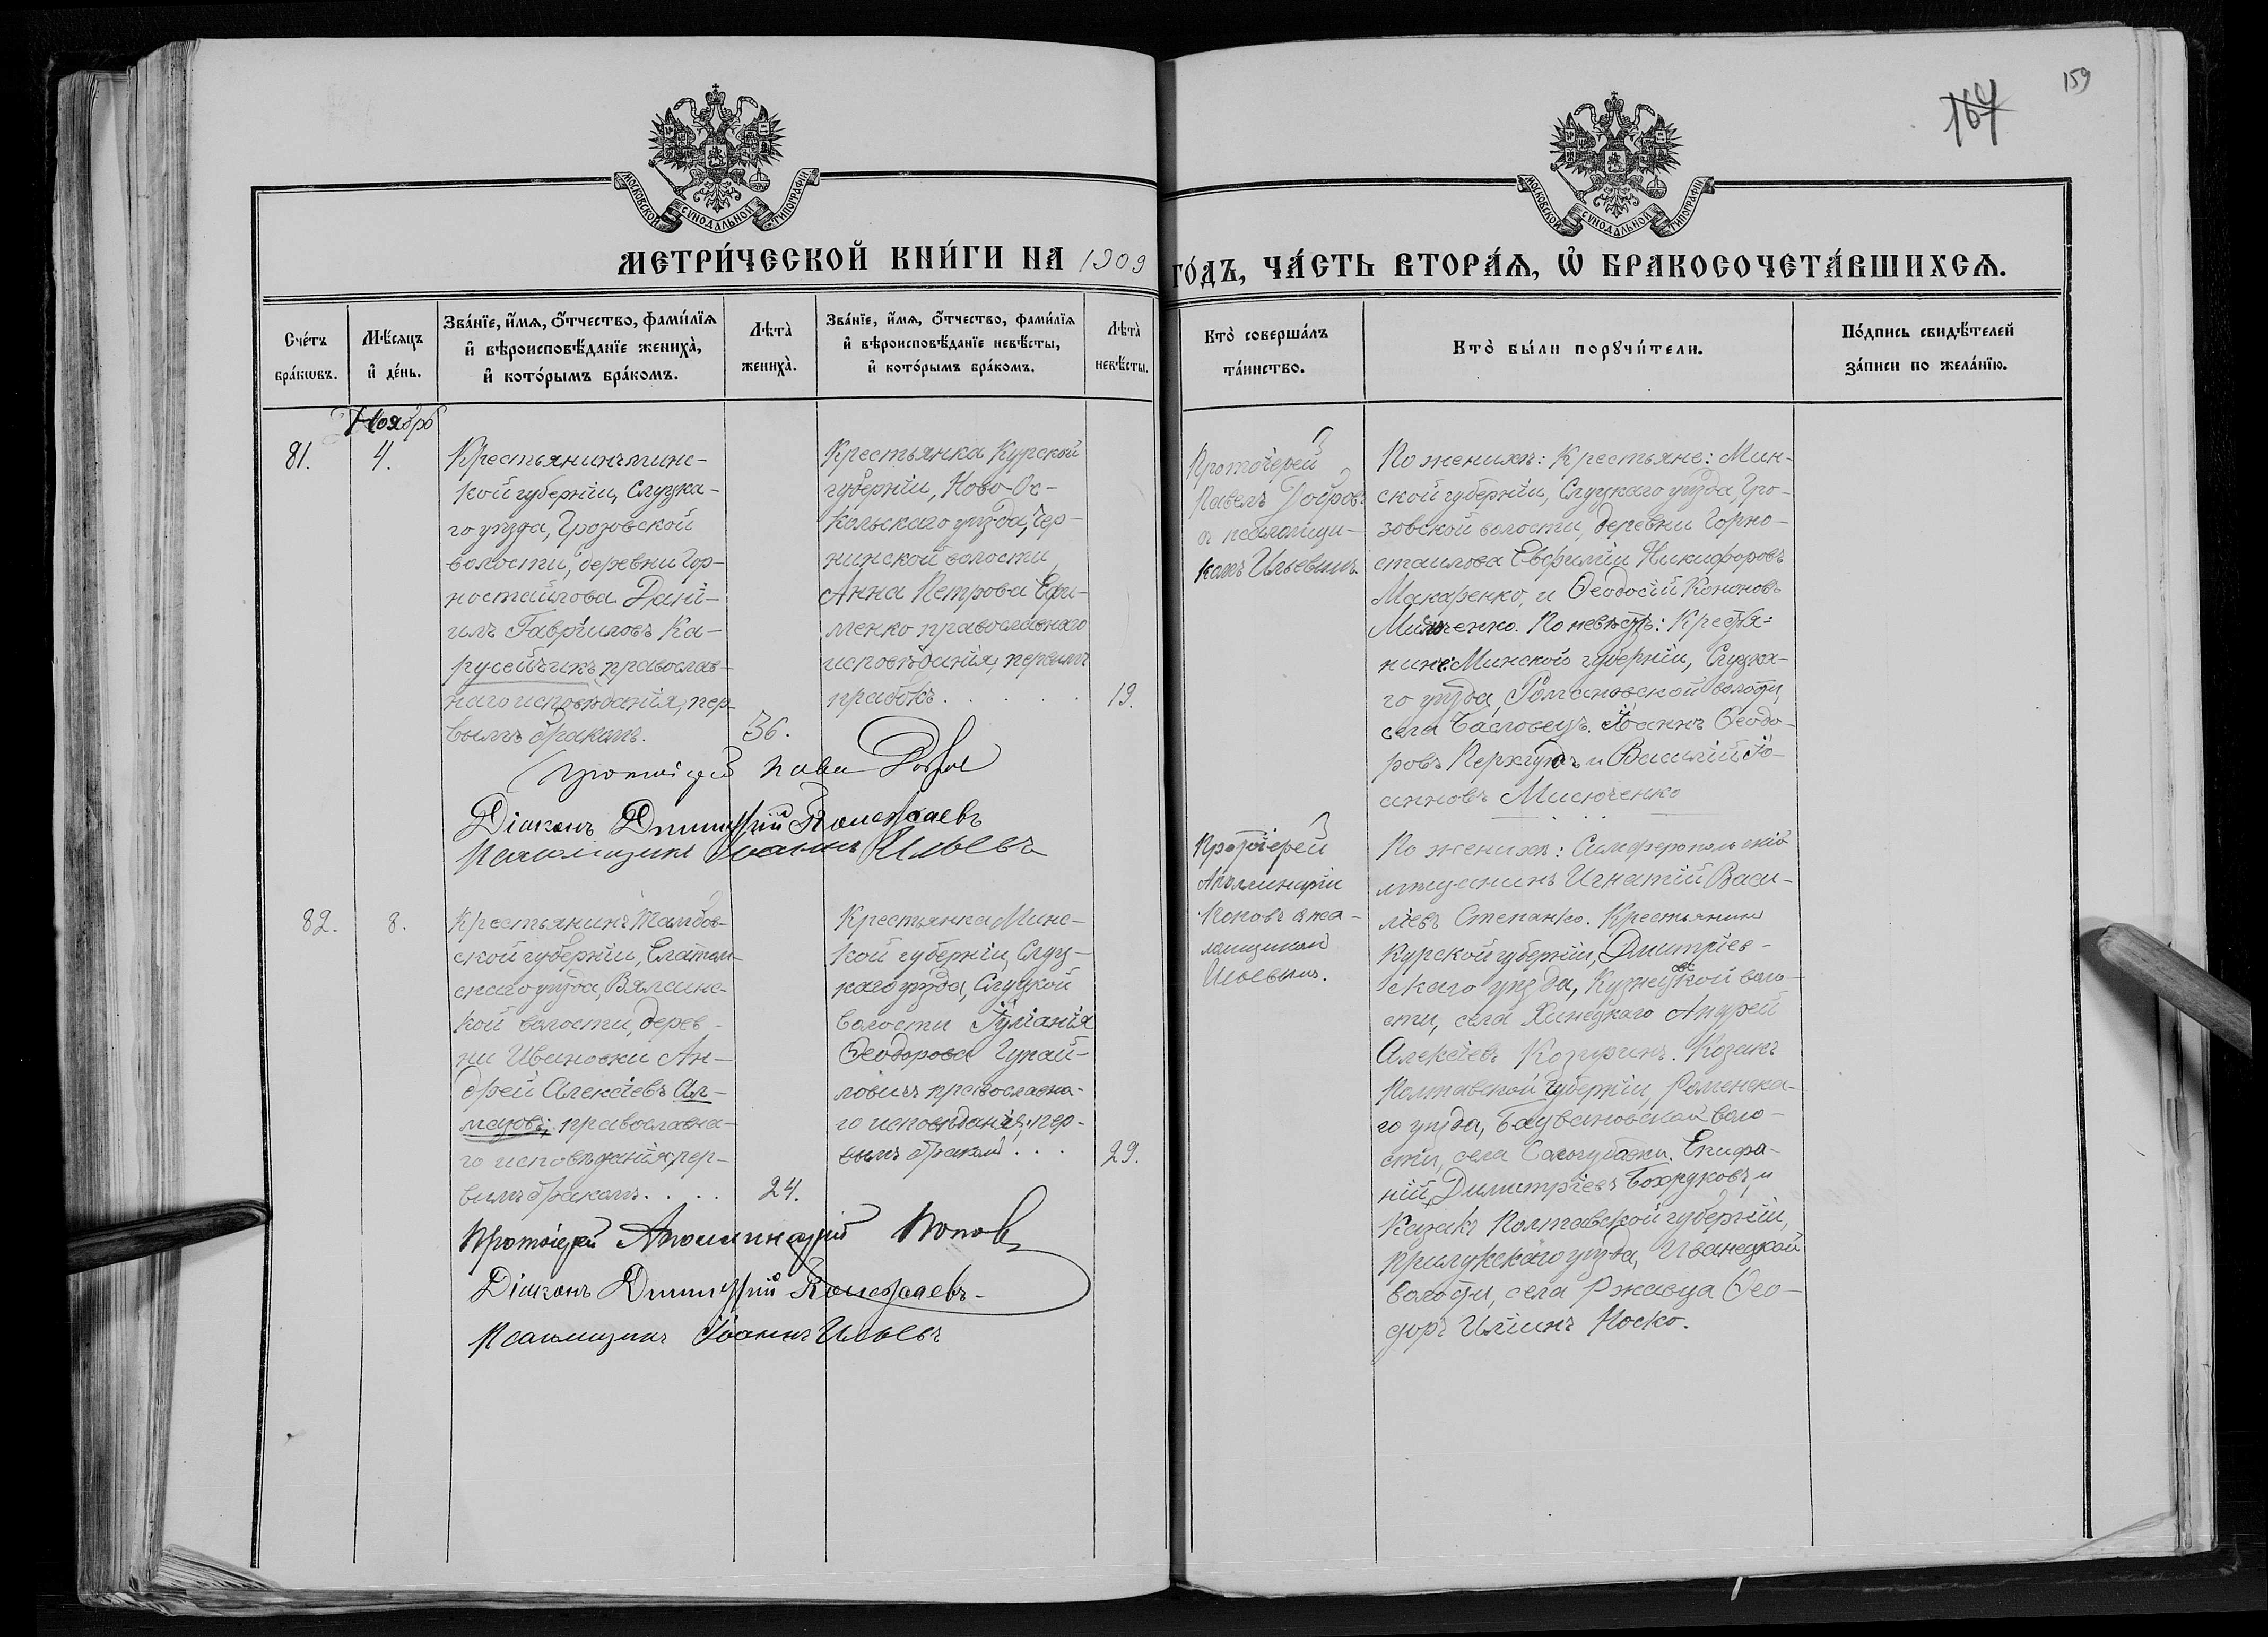 159
167
МОСКОВСКОЙ СѴНОДАЛЬНОЙ ТИПОГРАФІИ
МОСКОВСКОЙ СѴНОДАЛЬНОЙ ТИПОГРАФІИ
МЕТРИ́ЧЕСКОЙ КНИ́ГИ НА 1909
ГО́ДЪ, ЧА́СТЬ ВТОРА́Ѧ, Ѽ БРАКОСОЧЕТА́ВШИХСѦ.
Сче́тъ бра́кѡвъ.
Мѣ́сяцъ и де́нь.
Зва́нїе, и́мѧ, о́тчество, фами́лїѧ
и вѣроисповѣ́данїе жениха̀,
и кото́рымъ бра́комъ.
Лѣта̀ жениха̀.
Зва́нїе, и́мѧ, о́тчество, фами́лїѧ
и вѣроисповѣ́данїе невѣ́сты,
и кото́рымъ бра́комъ.
Лѣта̀ невѣ́сты.
Кто̀ соверша́лъ
та́инство.
Кто̀ бы́ли порꙋчи́тели.
По́дпись свидѣ́телей
за́писи по жела́нїю.
Ноябрь
81.
4.
Крестьянинъ Минс-
кой губерніи, Слуцка-
го уѣзда, Грозовской
волости, деревни Гор-
ностайлова Дані-
илъ Гавріиловъ Ка-
русейчикъ, православ-
наго исповѣданія, пер-
вымъ бракомъ.
36.
Крестьянка Курской
губерніи, Ново-Ос-
кольскаго уѣзда, Чер-
нинской волости,
Анна Петрова Ефи-
менко православнаго
исповѣданія, первымъ
бракомъ . . .
19.
Протоіерей
Павелъ Добров.
съ псаломщи-
комъ Ильевымъ.
По женихѣ: Крестьяне: Мин-
ской губерніи, Слуцкаго уѣзда, Гро-
зовской волости, деревни Горно-
стаилова Евфимій Никифоровъ
Макаренко, и Ѳеодосій Кононовъ
Мисюченко. По невѣстѣ: Крестья-
нинъ: Минской губерніи, Слуцка-
го уѣзда, Романовской волости,
села Басловецъ. Іоаннъ Ѳеодо-
ровъ и Василій Іо-
анновъ Мисюченко
Протоіерей Павел
Діаконъ Димитрій
Псаломщикъ Іоаннъ Ильевъ
82.
8.
Крестьянинъ Тамбов-
ской губерніи, Елатом-
скаго уѣзда, Вялсинс-
кой волости, дерев-
ни Ивановки Ан-
дрей Алексіевъ Ал-
мазовъ, православна-
го исповѣданія, пер-
вымъ бракомъ . . . .
24.
Крестьянка Минс-
кой губерніи, Слуц-
каго уѣзда, Слуцкой
волости Іуліанія
Ѳеодорова Гупай-
ловичъ православна-
го исповѣданія, пер-
вымъ бракомъ . . .
29.
Протоіерей
Аполлинарій
Поповъ съ пса-
ломщикомъ
Ильевымъ.
По женихѣ: Симферопольскій
мѣщанинъ Игнатій Васи-
ліевъ Степанко. Крестьянинъ
Курской губерніи, Дмитріев-
скаго уѣзда, волo-
сти, села Хинецкаго Андрей
Алексіевъ Козыринъ. Козакъ
Полтавской губерніи, Роменска-
го уѣзда, воло-
сти, села Сологубовки. Епифа-
ній Димитріевъ и
Казакъ Полтавской губерніи,
Прилукскаго уѣзда, Иваницкой
волости, села Ржавца Ѳео-
доръ Иліинъ Носко.
Протоіерей Аполлинарій Попов
Діаконъ Димитрій
Псаломщикъ Іоаннъ Ильевъ